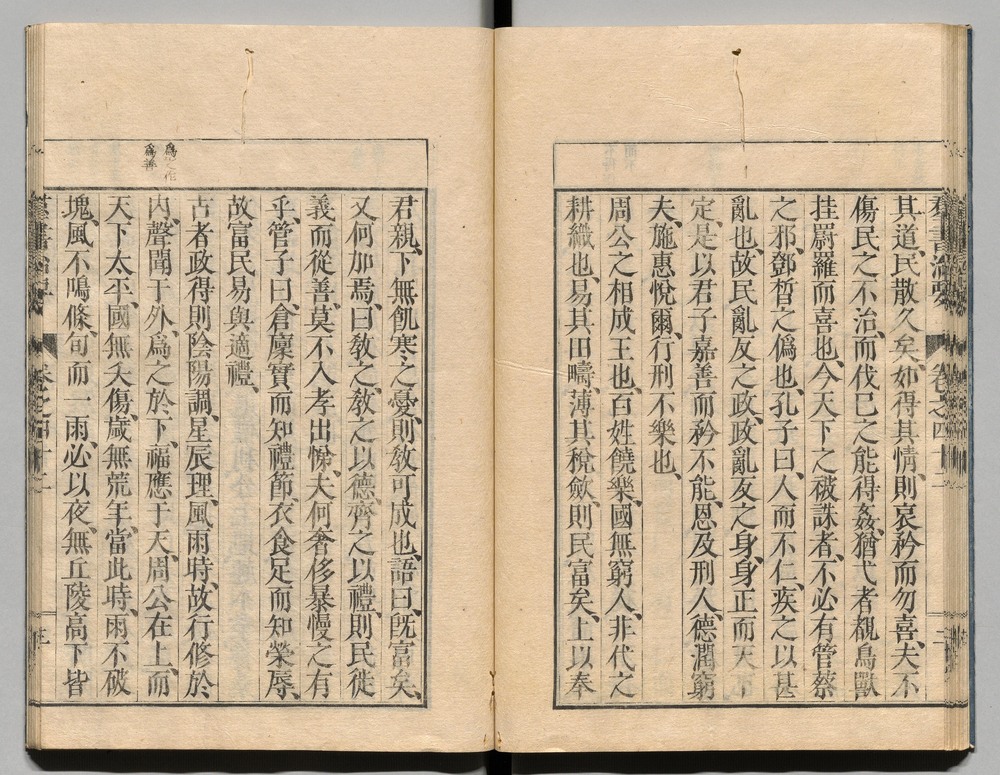 羣書治要 卷之四十二
其道、民散久矣、如得其情、則哀矜而勿喜、夫不
傷民之不治、而伐己之能得姦、猶弋者覩鳥獸
挂罻羅而喜也、今天下之被誅者、不必有管蔡
之邪、鄧晳之僞也、孔子曰、人而不仁、疾之以甚、
亂也、故民亂反之政、政亂反之身、身正而天下
定、是以君子嘉善而矜不能、恩及刑人、德潤窮
夫、施惠悅爾、行刑不樂也、
周公之相成王也、百姓饒樂、國無窮人、非代之
耕織也、易其田疇、薄其稅斂、則民富矣、上以奉
君親、下無飢寒之憂、則敎可成也、語曰、旣富矣、
又何加焉、曰敎之、敎之以德、齊之以禮、則民徙
義而從善、莫不入孝出悌、夫何奢侈暴慢之有
乎、管子曰、倉廩實而知禮節、衣食足而知榮辱、
故富民易與適禮、
古者政得則陰陽調、星辰理、風雨時、故行修於
內、聲聞于外、爲之於下、福應于天、周公在上、而
天下太平、國無夭傷、歲無荒年、當此時、雨不破
塊、風不鳴條、旬而一雨、必以夜、無丘陵高下皆
爲之作
爲善
羣書治要 卷之四十二